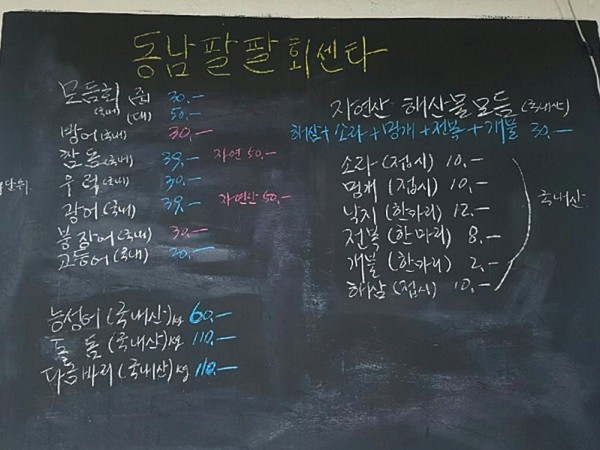 동남팔팔회센타
모듬회 (중) 30.-
(국내) (대) 50.-
방어 (국내) 30.-
참돔 (국내) 39.- 자연 50.-
우럭 (국내) 30.-
광어 (국내) 39.- 자연산 50.-
붕장어 (국내) 30.-
고등어 (국내) 20.-
단위.
능성어 (국내산) kg 60.-
돌돔 (국내산) kg 110.-
다금바리 (국내산) kg 110.-
자연산 해산물모듬 (국내산)
해삼+소라+멍게+전복+개불 50.-
소라 (접시) 10.-
멍게 (접시) 10.-
낙지 (한마리) 12.-
전복 (한마리) 8.-
개불 (한마리) 2.-
해삼 (접시) 10.-
국내산